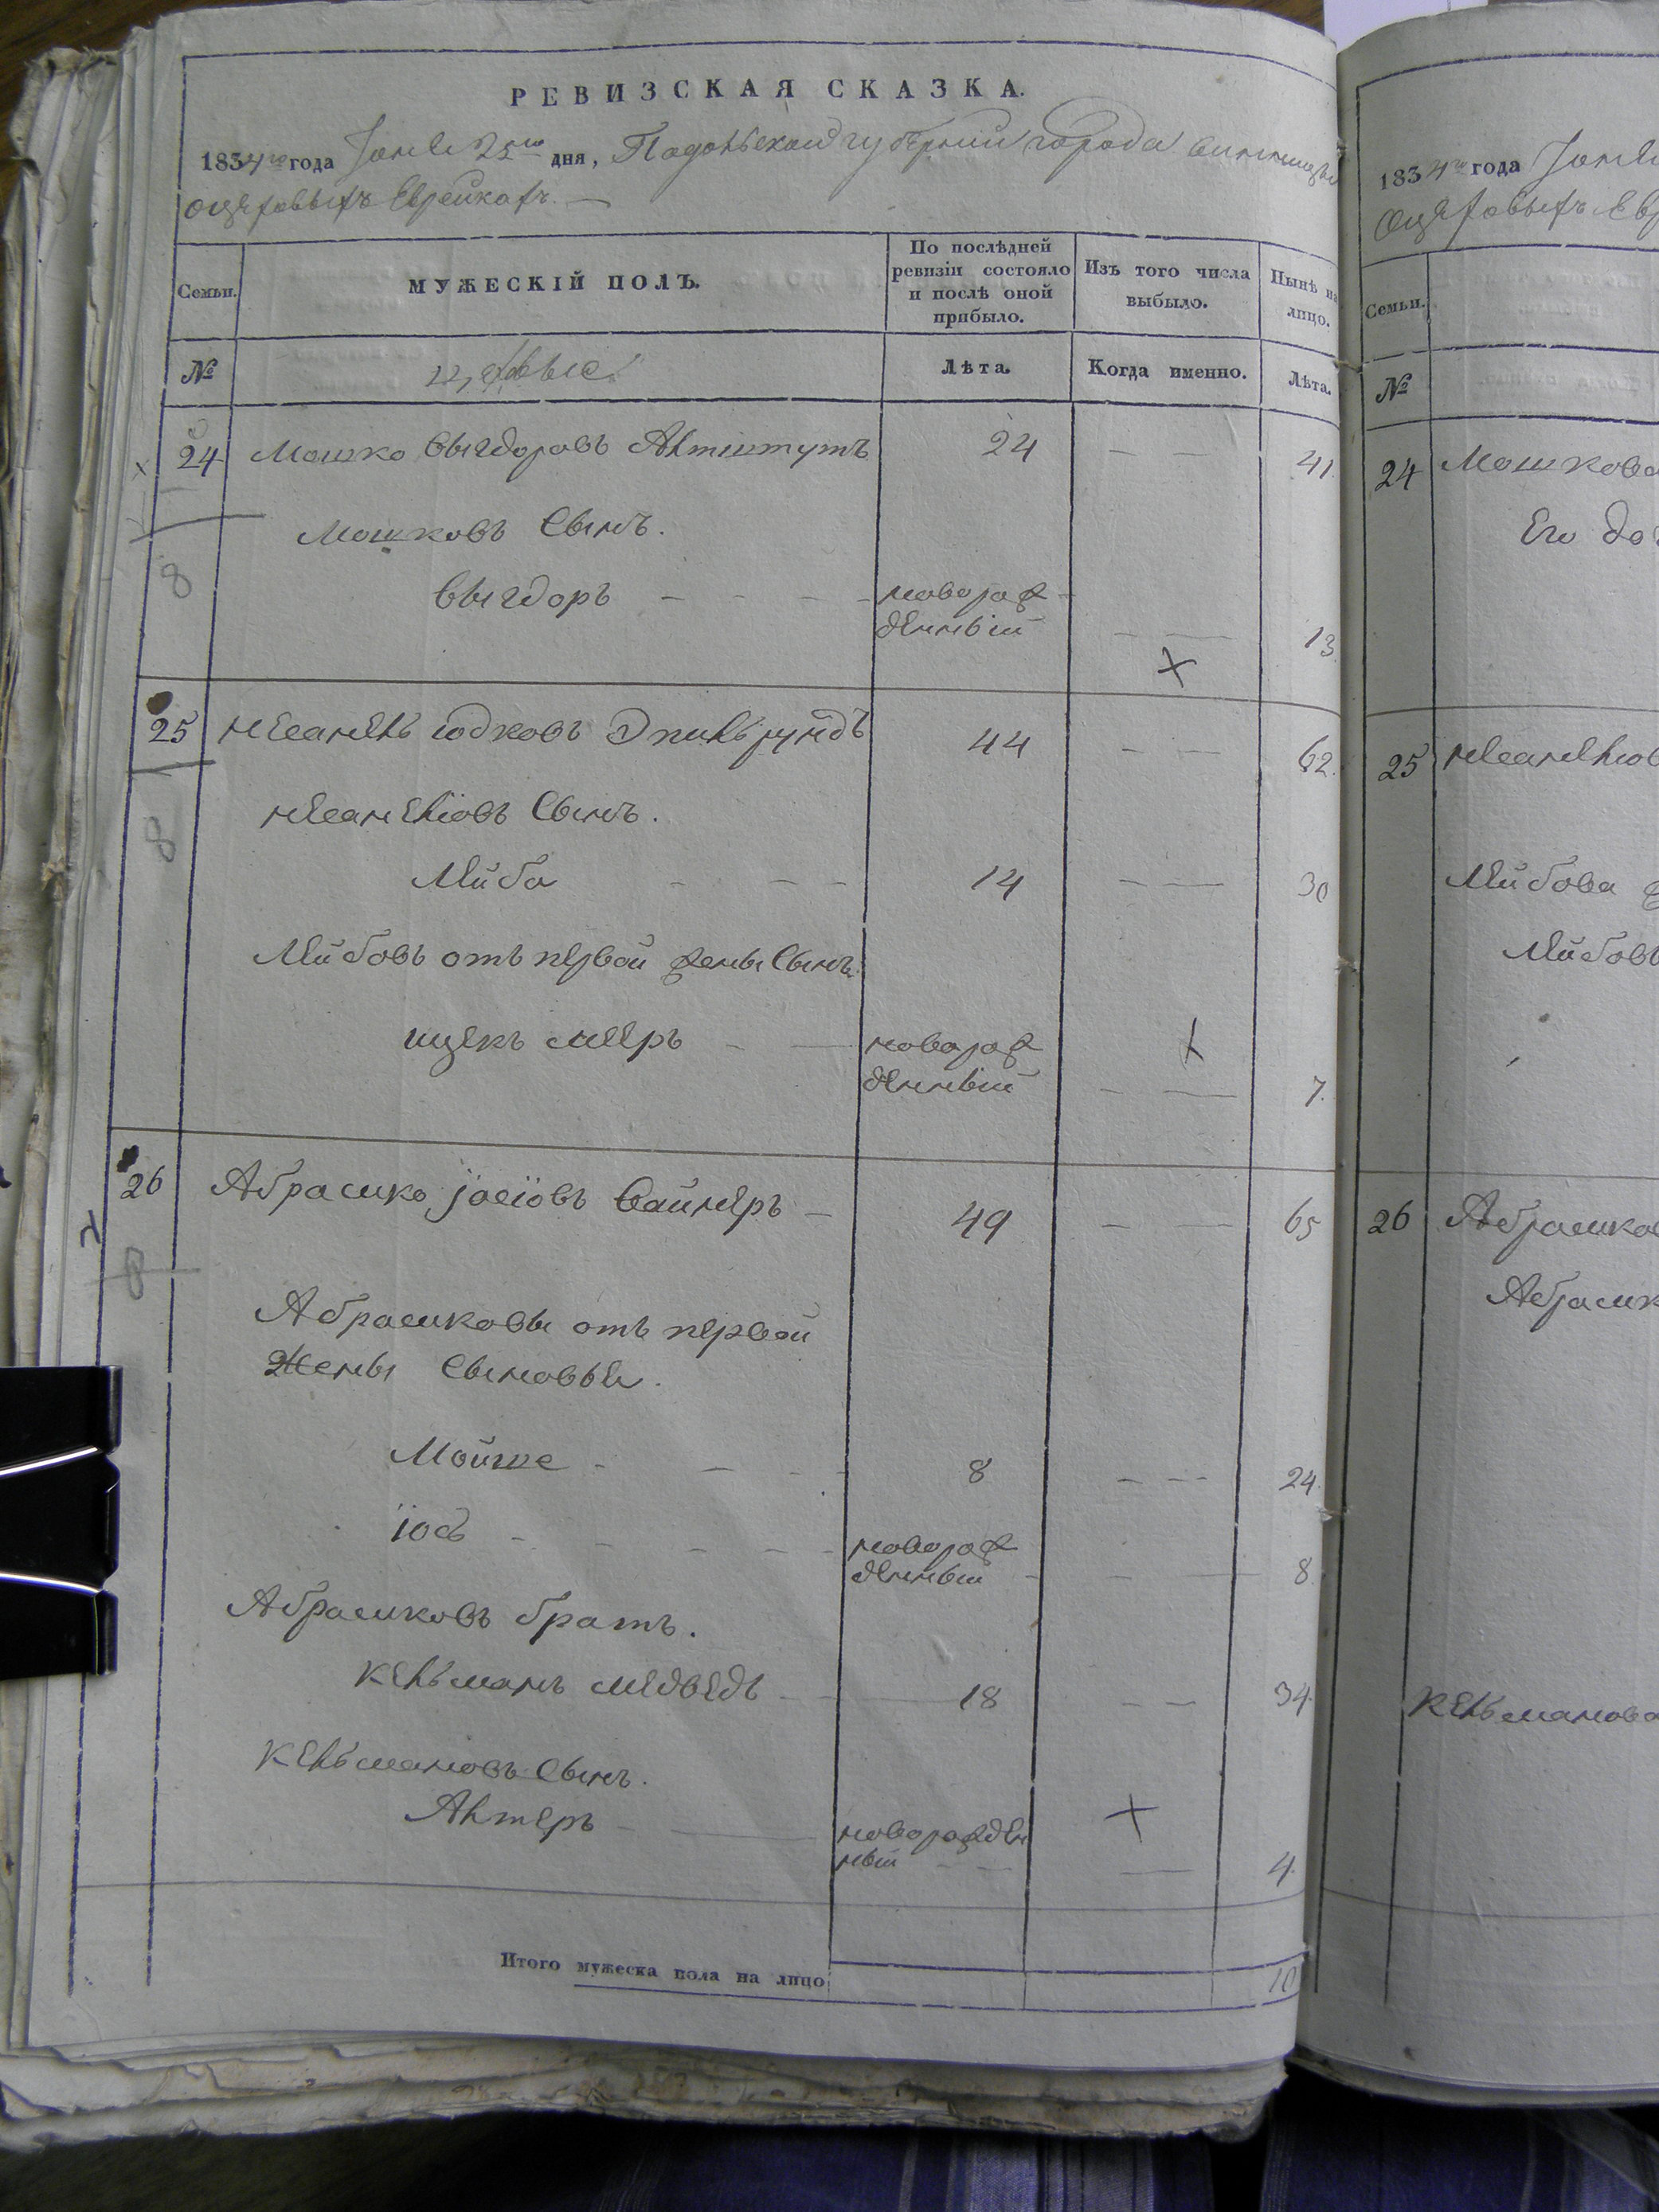 РЕВИЗСКАЯ СКАЗКА.
1834го года Іюля 25го дня, Подольской губерніи города Винницы
о цеховыхъ Евреяхъ. —
Семьи. МУЖЕСКІЙ ПОЛЪ. По послѣдней ревизіи состояло и послѣ оной прибыло. Изъ того числа выбыло. Нынѣ на лицо.
№ цеховые Лѣта. Когда именно. Лѣта.
24 Мошко Вигдоровъ Альтштутъ 24 — — 41.
Мошковъ Сынъ.
8
Вигдоръ - - - - новорож
денный — — 13.
25 Месанель Юдковъ 44 — — 62.
8
Месанелiовъ Сынъ.
Лейба - - - 14 — — 30
Лейбовъ отъ первой жены Сынъ.
ицекъ Мееръ - — новорож
денный — — 7.
26 Абрамко Іосіовъ Вайнеръ — 49 — — 65
8
Абрамковы отъ первой
Жены Сыновья.
Мойше - - - - 8 — - - 24.
Іось - - - - - новорож
денный - - — 8
Абрамковъ братъ.
Кельманъ Медведь - — 18 — — 34.
Кельмановъ Сынъ.
Альтеръ - — новорожден
ный — — — 4.
Итого мужеска пола на лицо 10
1834го года Іюля
о цеховыхъ Евр
Семьи.
№
24 Мошкова
Его до
25
Лейбова ж
Лейбовъ
26 Абрамков
Абрамк
Кельманова